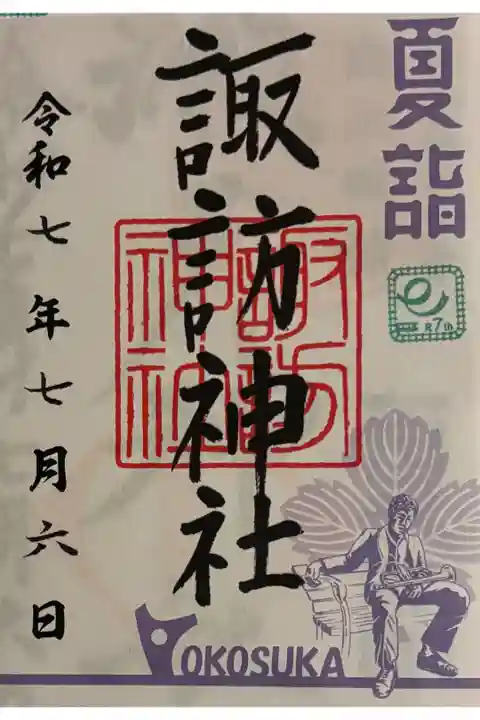 夏詣
R7th
諏訪神社
諏訪
神社
令和七年七月六日
YOKOSUKA